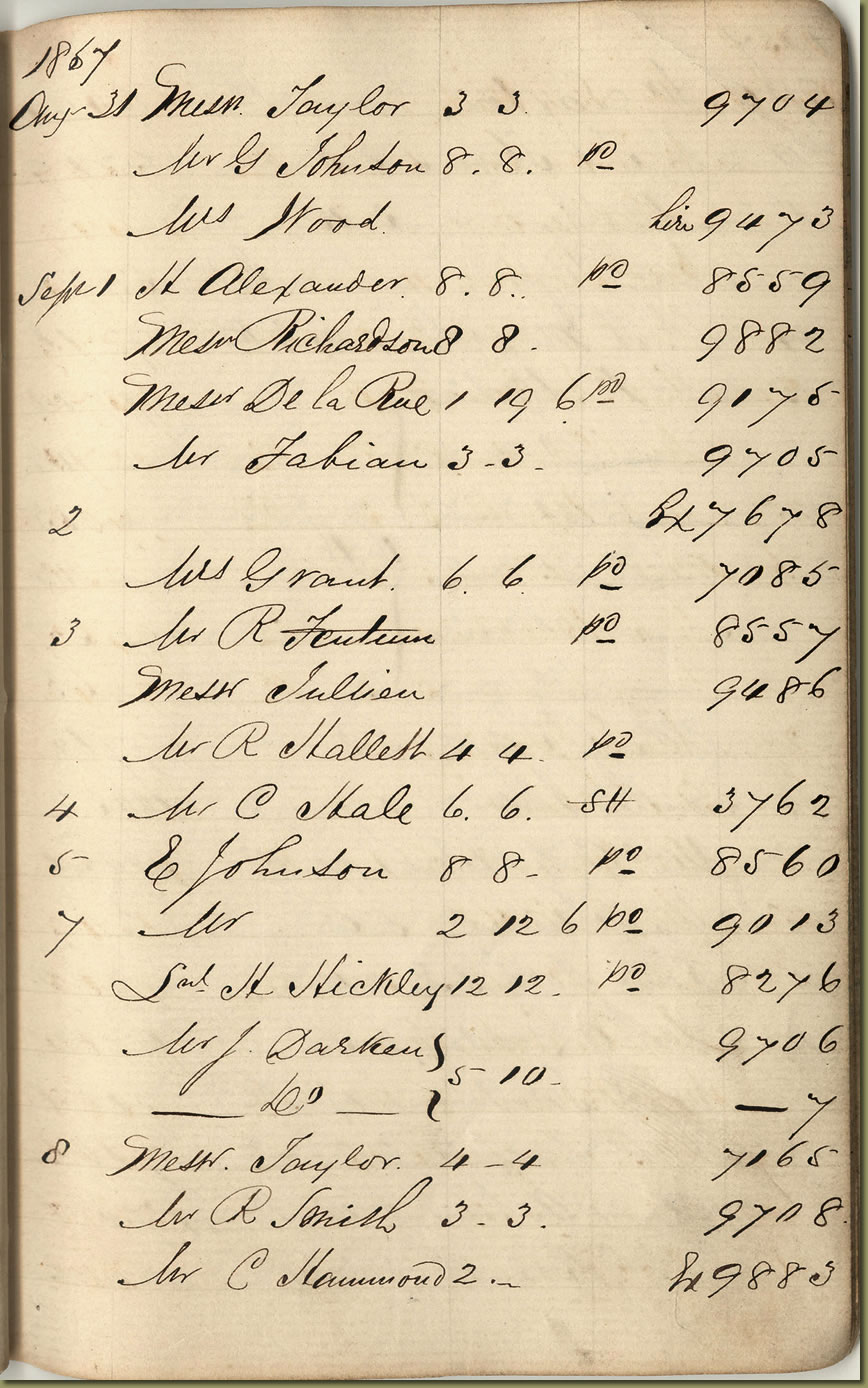 1867
Aug 31 Messr. Taylor 3 3. 9704
Mr G Johnson 8. 8. pd
Mrs Wood. hire 9473
Sept 1 H Alexander. 8. 8.. pd 8559
Messr Richardson 8 8. 9882
Messr De la Rue 1 19 6 pd 9175
Mr Fabian 3-3- 9705
2 Ex 7678
Mrs Grant. 6. 6. pd 7085
3 Mr R Fentum pd 8557
Messr Jullien 9486
Mr R Hallett 4 4. pd
4 Mr C Hale 6. 6. SH 3762
5 E Johnson 8 8- pd 8560
7 Mr 2 12 6 pd 9013
H Hickley 12 12. pd 8276
Mr J. Darken } 9706
5 10-
— Do — } — 7
8 Messr. Taylor. 4-4 7165
Mr R Smith 3-3. 9708
Mr C Hammond 2.- Ex 9883